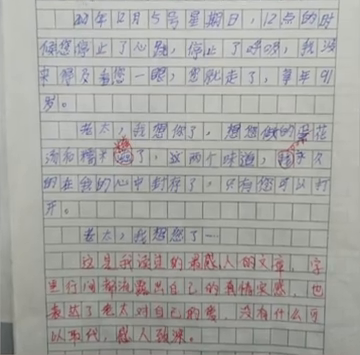 22年12月5号星期日，12点的时
候您停止了心跳，停止了呼吸，我没
来得及看您一眼，您就走了，享年91
岁。
老太，我想您了，想您做的
汤和糟米 了，这两个味道，我永久
的在我的心中封存了，只有您可以打
开。
老太，我想您了…
这是我读过的最感人的文章，字
里行间都流露出自己的真情实感，也
表达了老太对自己的爱，没有什么可
以取代，感人致深。